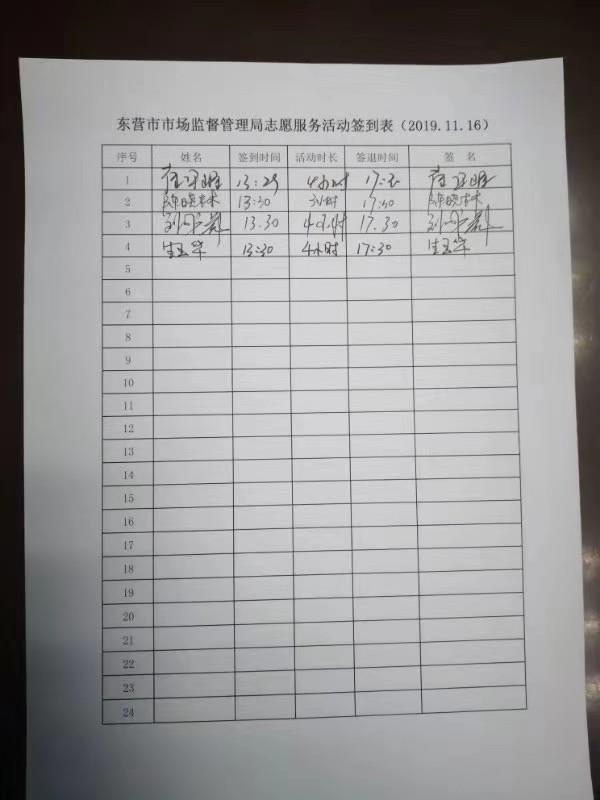 东营市市场监督管理局志愿服务活动签到表（2019.11.16）
序号 姓名 签到时间 活动时长 签退时间 签 名
1 13:29 4小时
2 陈晓林 13:30 小时 17:30 陈晓林
3 刘 群 13.30 4小时 17.30 刘 群
4 13:30 4小时 17:30
5
6
7
8
9
10
11
12
13
14
15
16
17
18
19
20
21
22
23
24